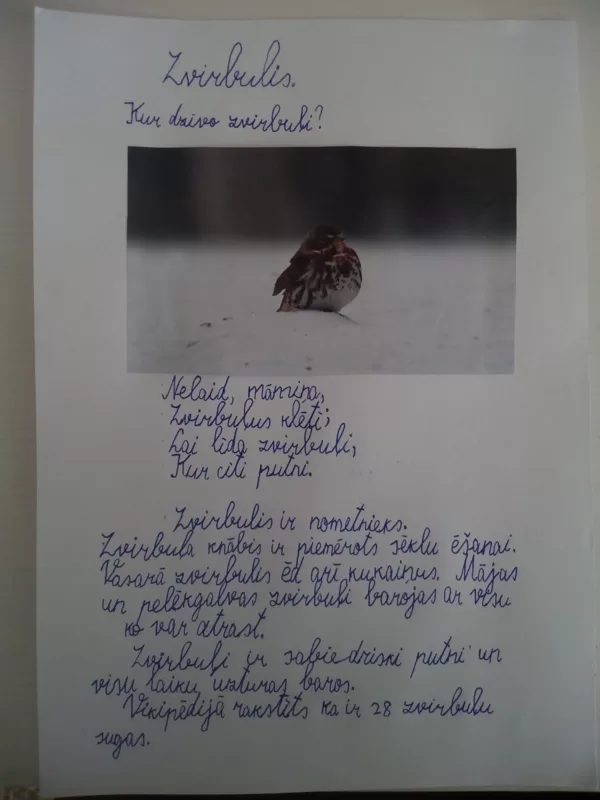 Zvirbulis.
Kur dzīvo zvirbuļi?
Nelaid, māmiņa,
Zvirbuļus klētī;
Lai lida zvirbuļi,
Kur citi putni.
Zvirbulis ir nometnieks.
Zvirbuļa knābis ir piemērots sēklu ēšanai.
Vasarā zvirbulis ēd arī kukaiņus. Mājas
un pelēkgalvas zvirbuļi barojas ar visu
ko var atrast.
Zvirbuļi ir sabiedriski putni un
visu laiku uzturas baros.
Vikipēdijā rakstīts ka ir 28 zvirbuļu
sugas.